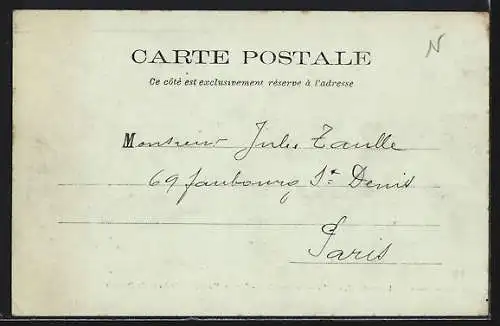 N
CARTE POSTALE
Ce côté est exclusivement réservé à l'adresse
Monsieur Jules Taulle
69 faubourg St Denis
Paris